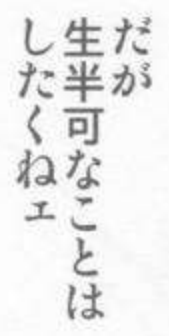 だが
生半可なことは
したくねェ